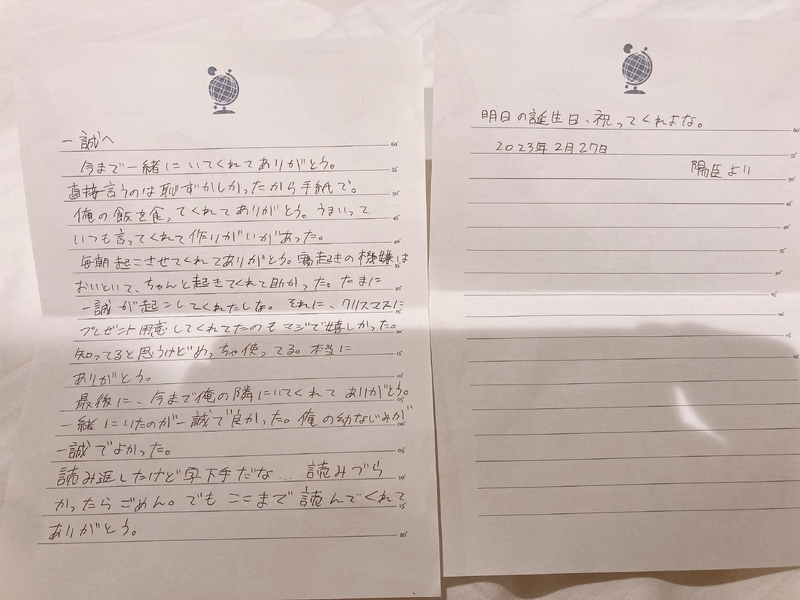 一誠へ
今まで一緒にいてくれてありがとう。
直接言うのは恥ずかしかったから手紙で。
俺の飯を食ってくれてありがとう。うまいって
いつも言ってくれて作りがいがあった。
毎朝起こさせてくれてありがとう。寝起きの機嫌は
おいといて、ちゃんと起きてくれて助かった。たまに
一誠が起こしてくれたしな。それに、クリスマスに
プレゼント用意してくれてたのもマジで嬉しかった。
知ってると思うけどめっちゃ使ってる。本当に
ありがとう。
最後に、今まで俺の隣にいてくれてありがとう。
一緒にいたのが一誠で良かった。俺の幼なじみが
一誠でよかった。
読み返したけど字下手だな… 読みづら
かったらごめん。でもここまで読んでくれて
ありがとう。
明日の誕生日、祝ってくれよな。
2023年2月27日
陽臣より